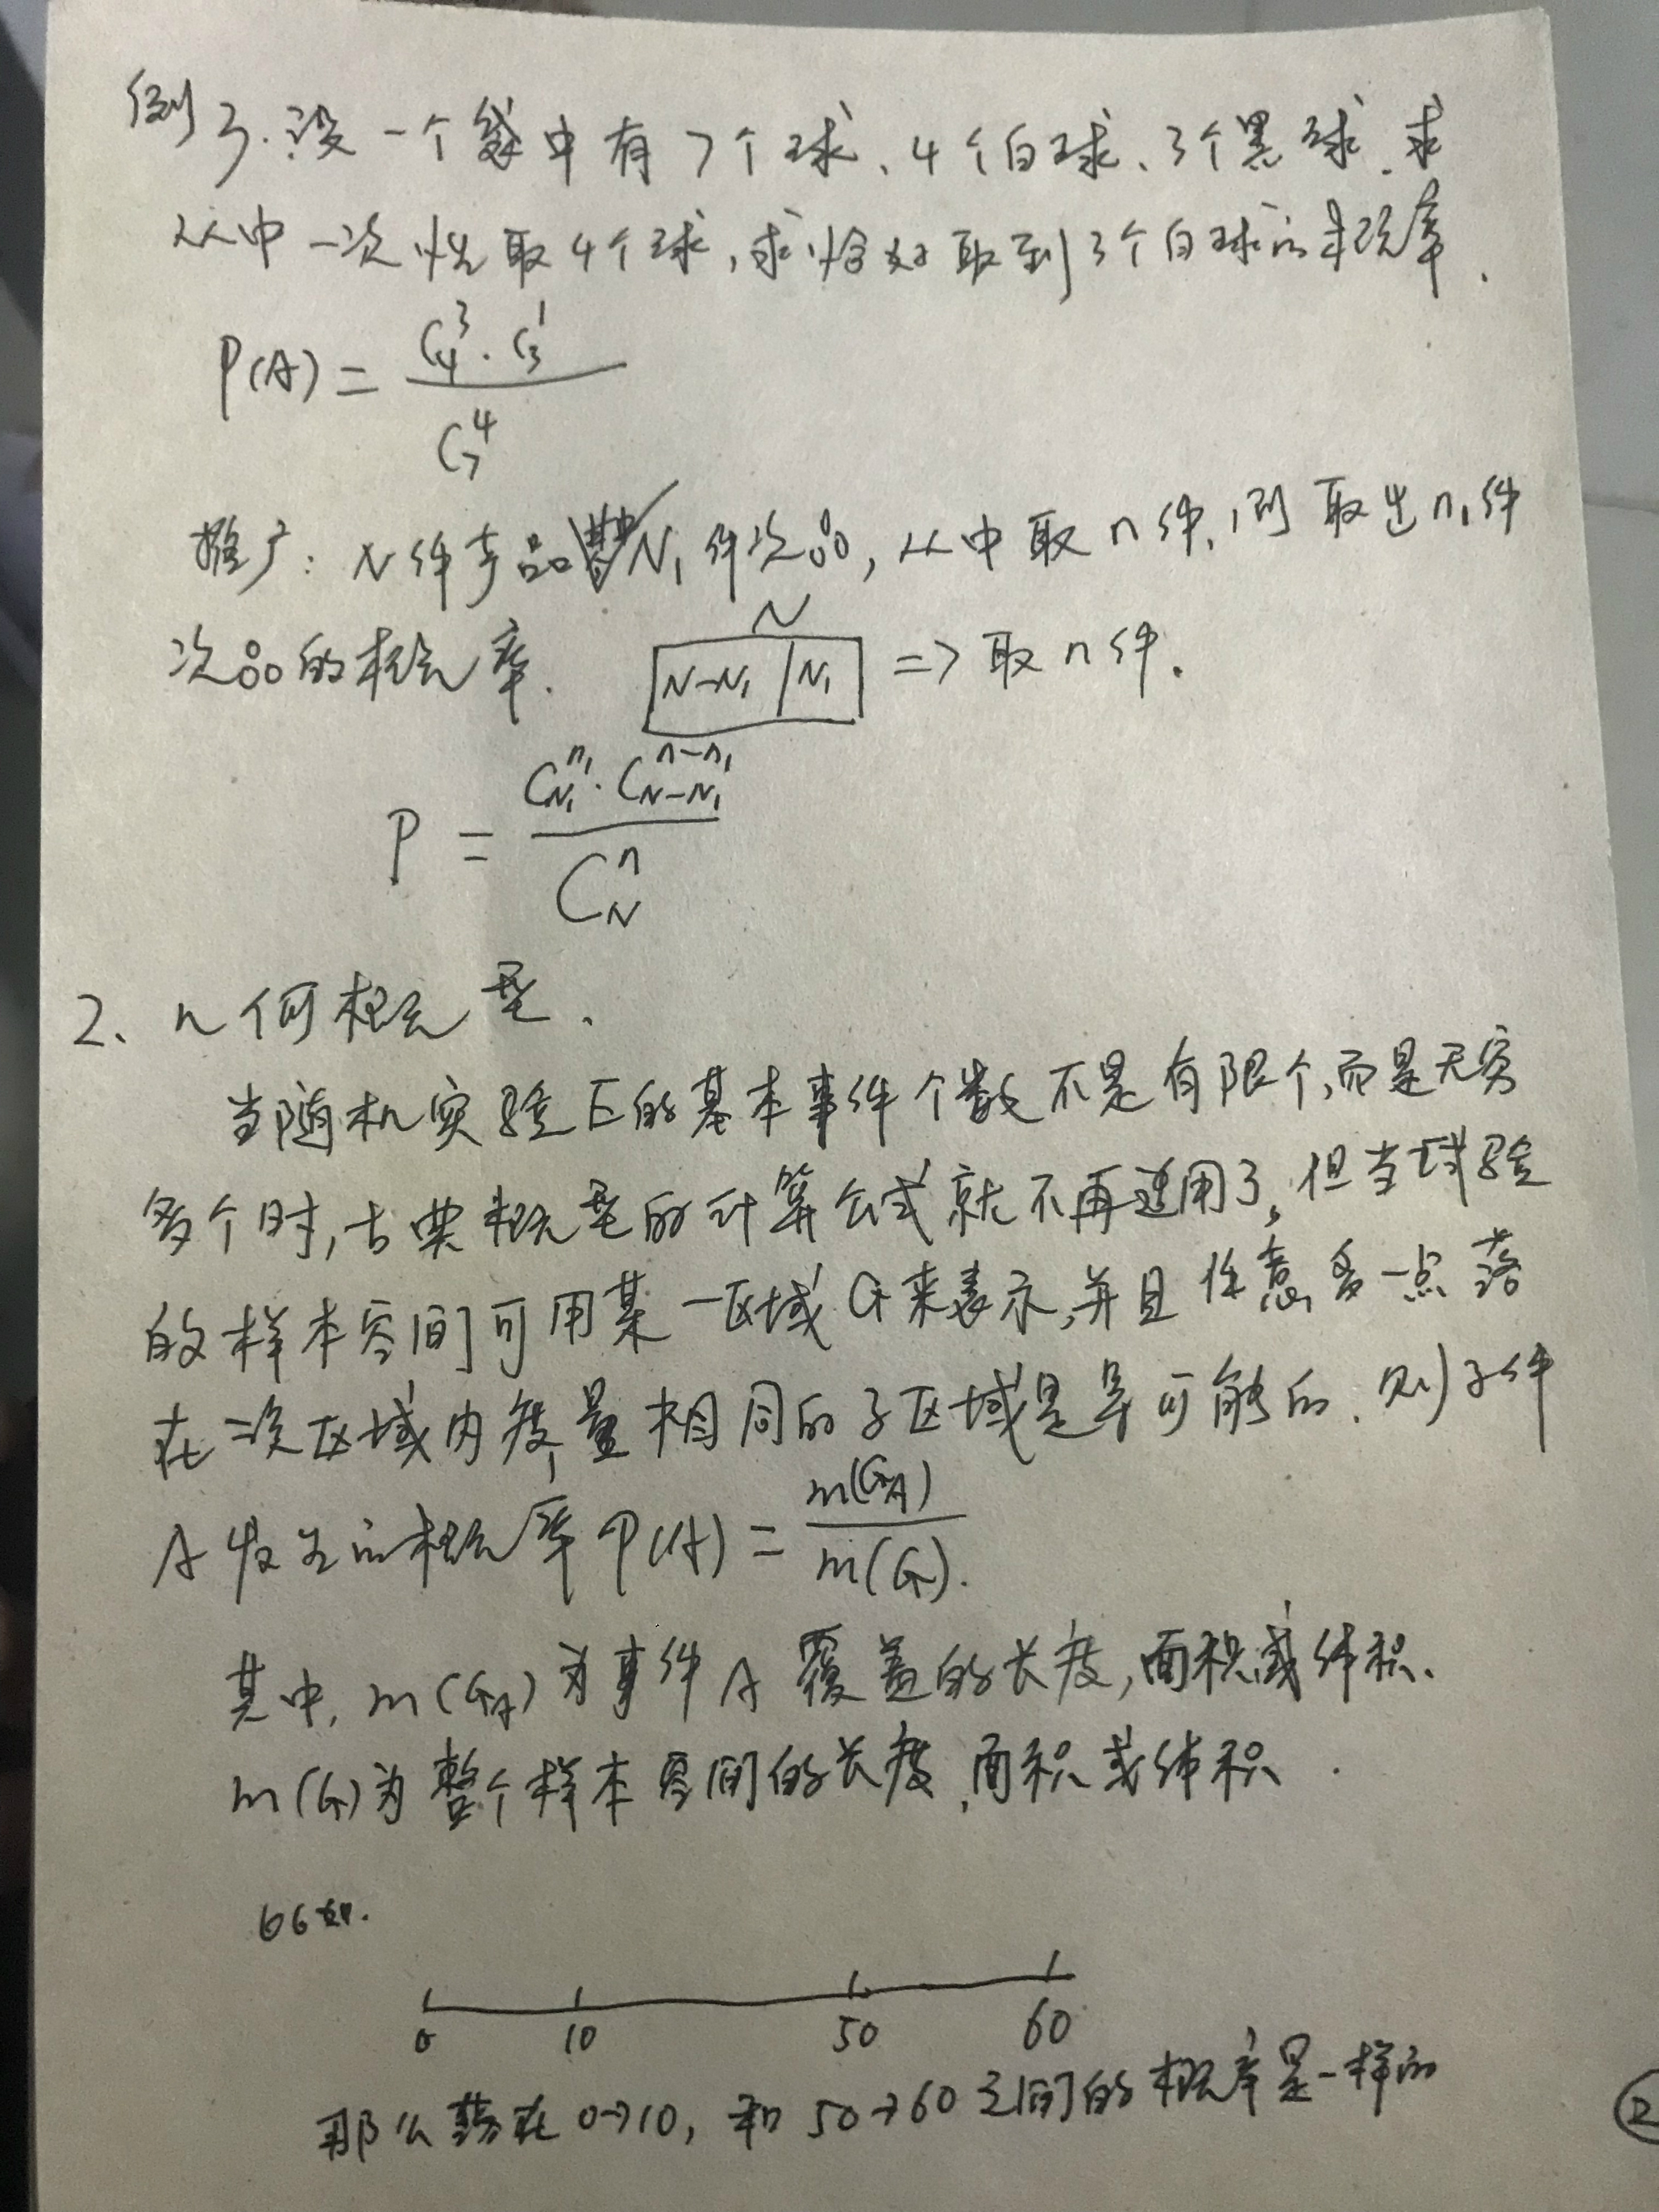 例3.设一个袋中有7个球、4个白球、3个黑球.求
从中一次性取4个球,求恰好取到3个白球的概率.
P(A) = C₄³·C₃¹ / C₇⁴
推广:N件产品 N₁件次品,从中取n件,则取出n₁件
次品的概率.
N
N-N₁ | N₁ => 取n件.
P = C_{N₁}^{n₁}·C_{N-N₁}^{n-n₁} / C_N^n
2、几何概型.
当随机实验下的基本事件个数不是有限个,而是无穷
多个时,古典概型的计算公式就不再适用了,但当试验
的样本空间可用某一区域G来表示,并且任意一点落
在一次区域内度量相同的子区域是等可能的.则事件
A发生的概率P(A) = m(G_A) / m(G).
其中,m(G_A)为事件A覆盖的长度,面积或体积.
m(G)为整个样本空间的长度、面积或体积.
0 10 50 60
那么落在0→10,和50→60之间的概率是一样的
②